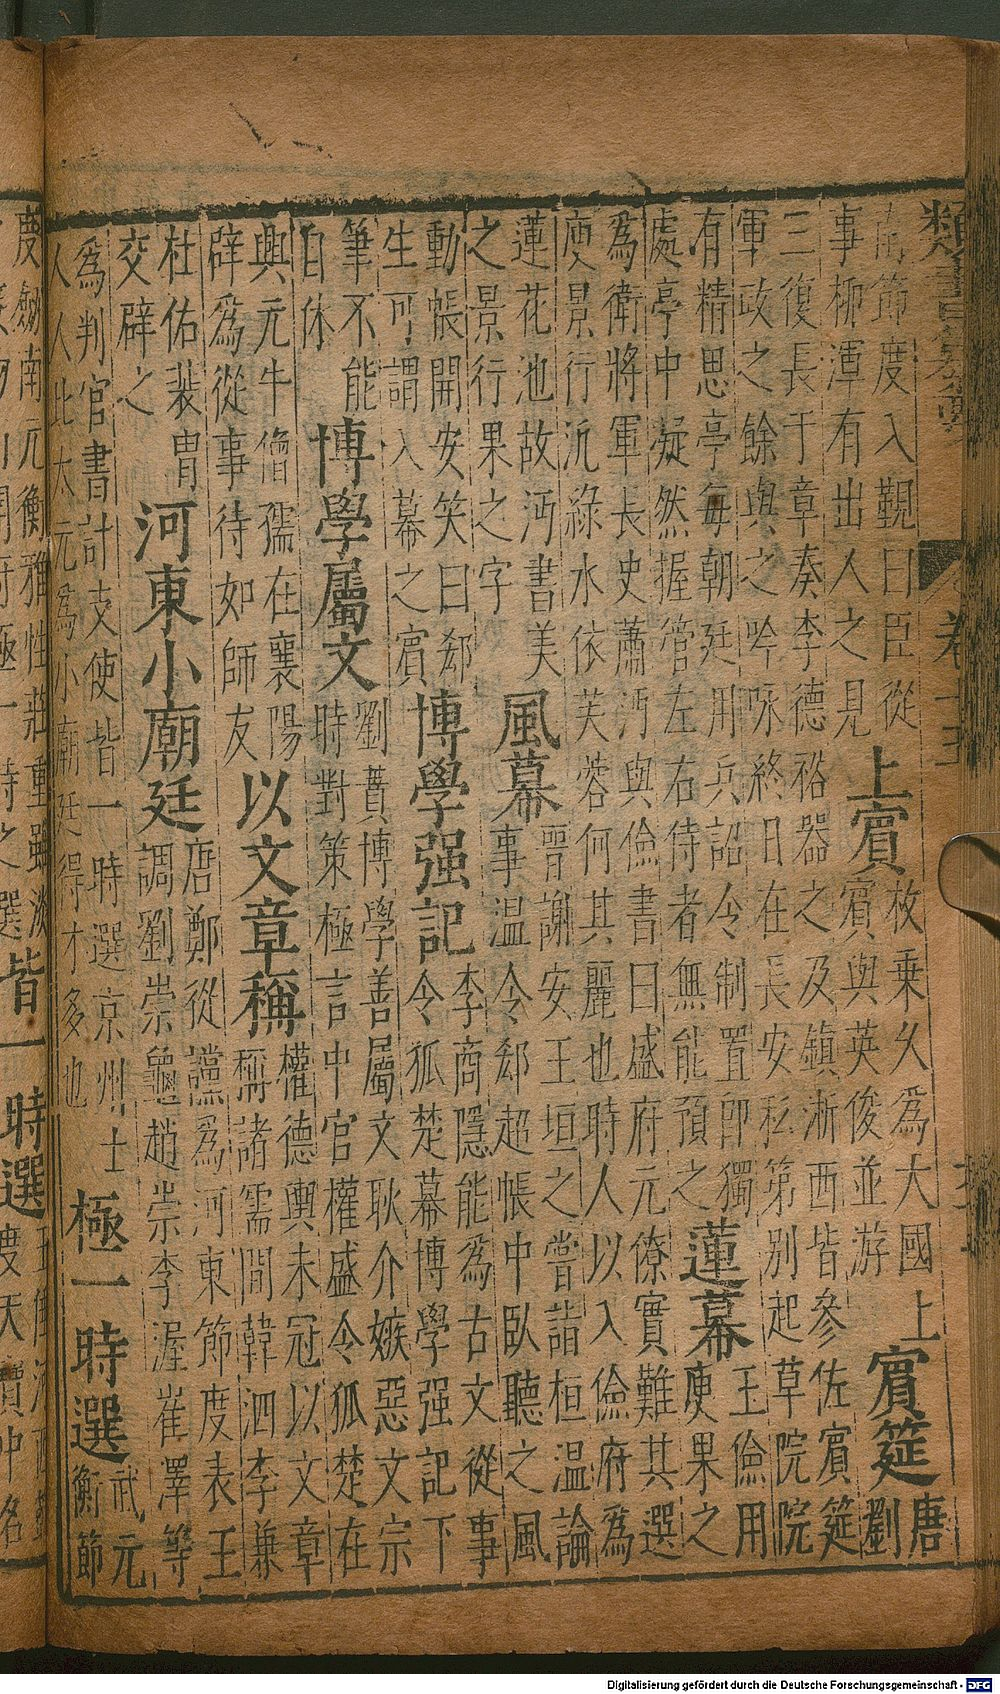 南節度入覲曰臣從
事柳渾有出人之見
上賓
枚乘久為大國上
賓與英俊並游
賓筵
唐
劉
三復長于章奏李德裕器之及鎮浙西皆參佐賓筵
軍政之餘與之吟咏終日在長安私第別起草院院
有精思亭每朝廷用兵詔令制置即獨
處亭中凝然握管左右侍者無能預之
蓮幕
王儉用
庾杲之
為衛將軍長史蕭沔與儉書曰盛府元僚實難其選
庾景行汎綠水依芙蓉何其麗也時人以入儉府為
蓮花池故沔書美
之景行果之字
風幕
晉謝安王垣之嘗詣桓温論
事温令郄超帳中臥聽之風
動帳開安笑曰郄
生可謂入幕之賓
博學强記
李商隱能為古文從事
令狐楚幕博學强記下
筆不能
自休
博學屬文
劉蕡博學善屬文耿介嫉惡文宗
時對策極言中官權盛令狐楚在
興元牛僧孺在襄陽
辟為從事待如師友
以文章稱
權德輿未冠以文章
稱諸儒間韓泗李兼
杜佑裴胄
交辟之
河東小廟廷
唐鄭從讜為河東節度表王
調劉崇龜趙崇李渥崔澤等
為判官書計支使皆一時選京州士
人人比太元為小廟廷得才多也
極一時選
武元
衡節
度劒南元衡雅性莊重雖淡
皆一時選
Digitalisierung gefördert durch die Deutsche Forschungsgemeinschaft - DFG